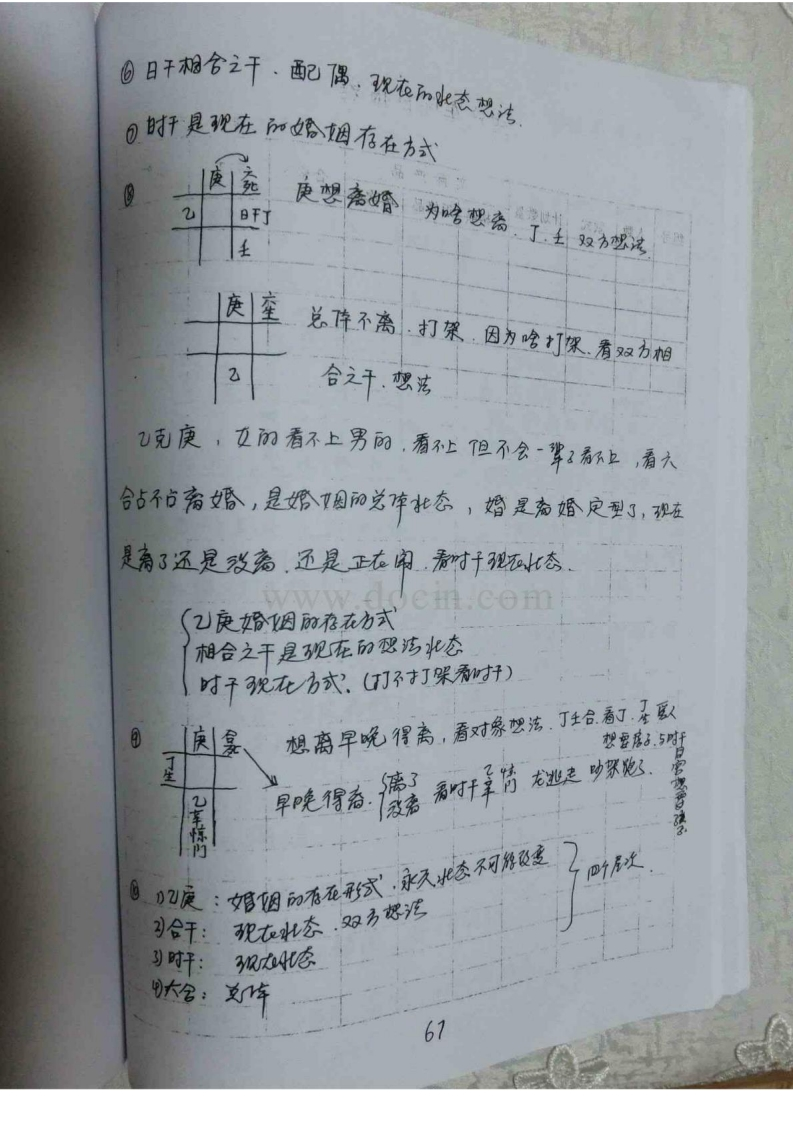 ⑥ 日干相合之干、配偶、现在的状态想法.
⑦ 时干是现在的婚姻存在方式
⑧ 庚 六死
乙 日干丁
壬
庚想离婚 为啥想离、丁、壬 双方想法
庚 六生
乙
总体不离、打架、因为啥打架、看双方相
合之干、想法
乙克庚,女的看不上男的,看不上但不会一辈子看不上,看六
合占不占离婚,是婚姻的总体状态,婚是离婚定型了,现在
是离了还是没离、还是正在闹、看时干现在状态.
www.docin.com
乙庚婚姻的存在方式
相合之干是现在的想法状态
时干现在方式.(打不打架看时干)
⑨ 庚
丁生
乙辛惊门
想离早晚得离,看对象想法、丁壬合、看丁、丁生
想要孩子、与时干
日宫想要孩子
早晚得离. 离了 没离 看时干 乙辛 惊门 龙逃走 吵架跑了.
⑩ 1)乙庚:婚姻的存在形式、永久状态不可能改变
2)合干: 现在状态、双方想法
3)时干: 现在状态
4)六合: 总体
四个层次.
67